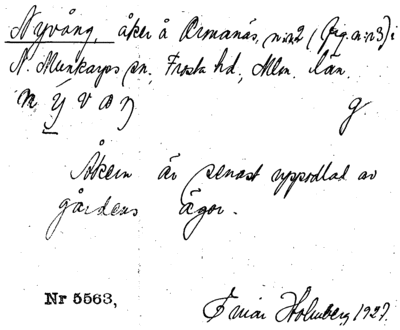 Nyvång, åker å Ormanäs, n:r 2 (Frg. a:r3) i
N. Munkarps sn., Frosta hd, Mlm. län.
n ý v a ŋ g.
Åkern är senast uppodlad av
gårdens ägor.
Nr 5563,
Einar Holmberg 1927.